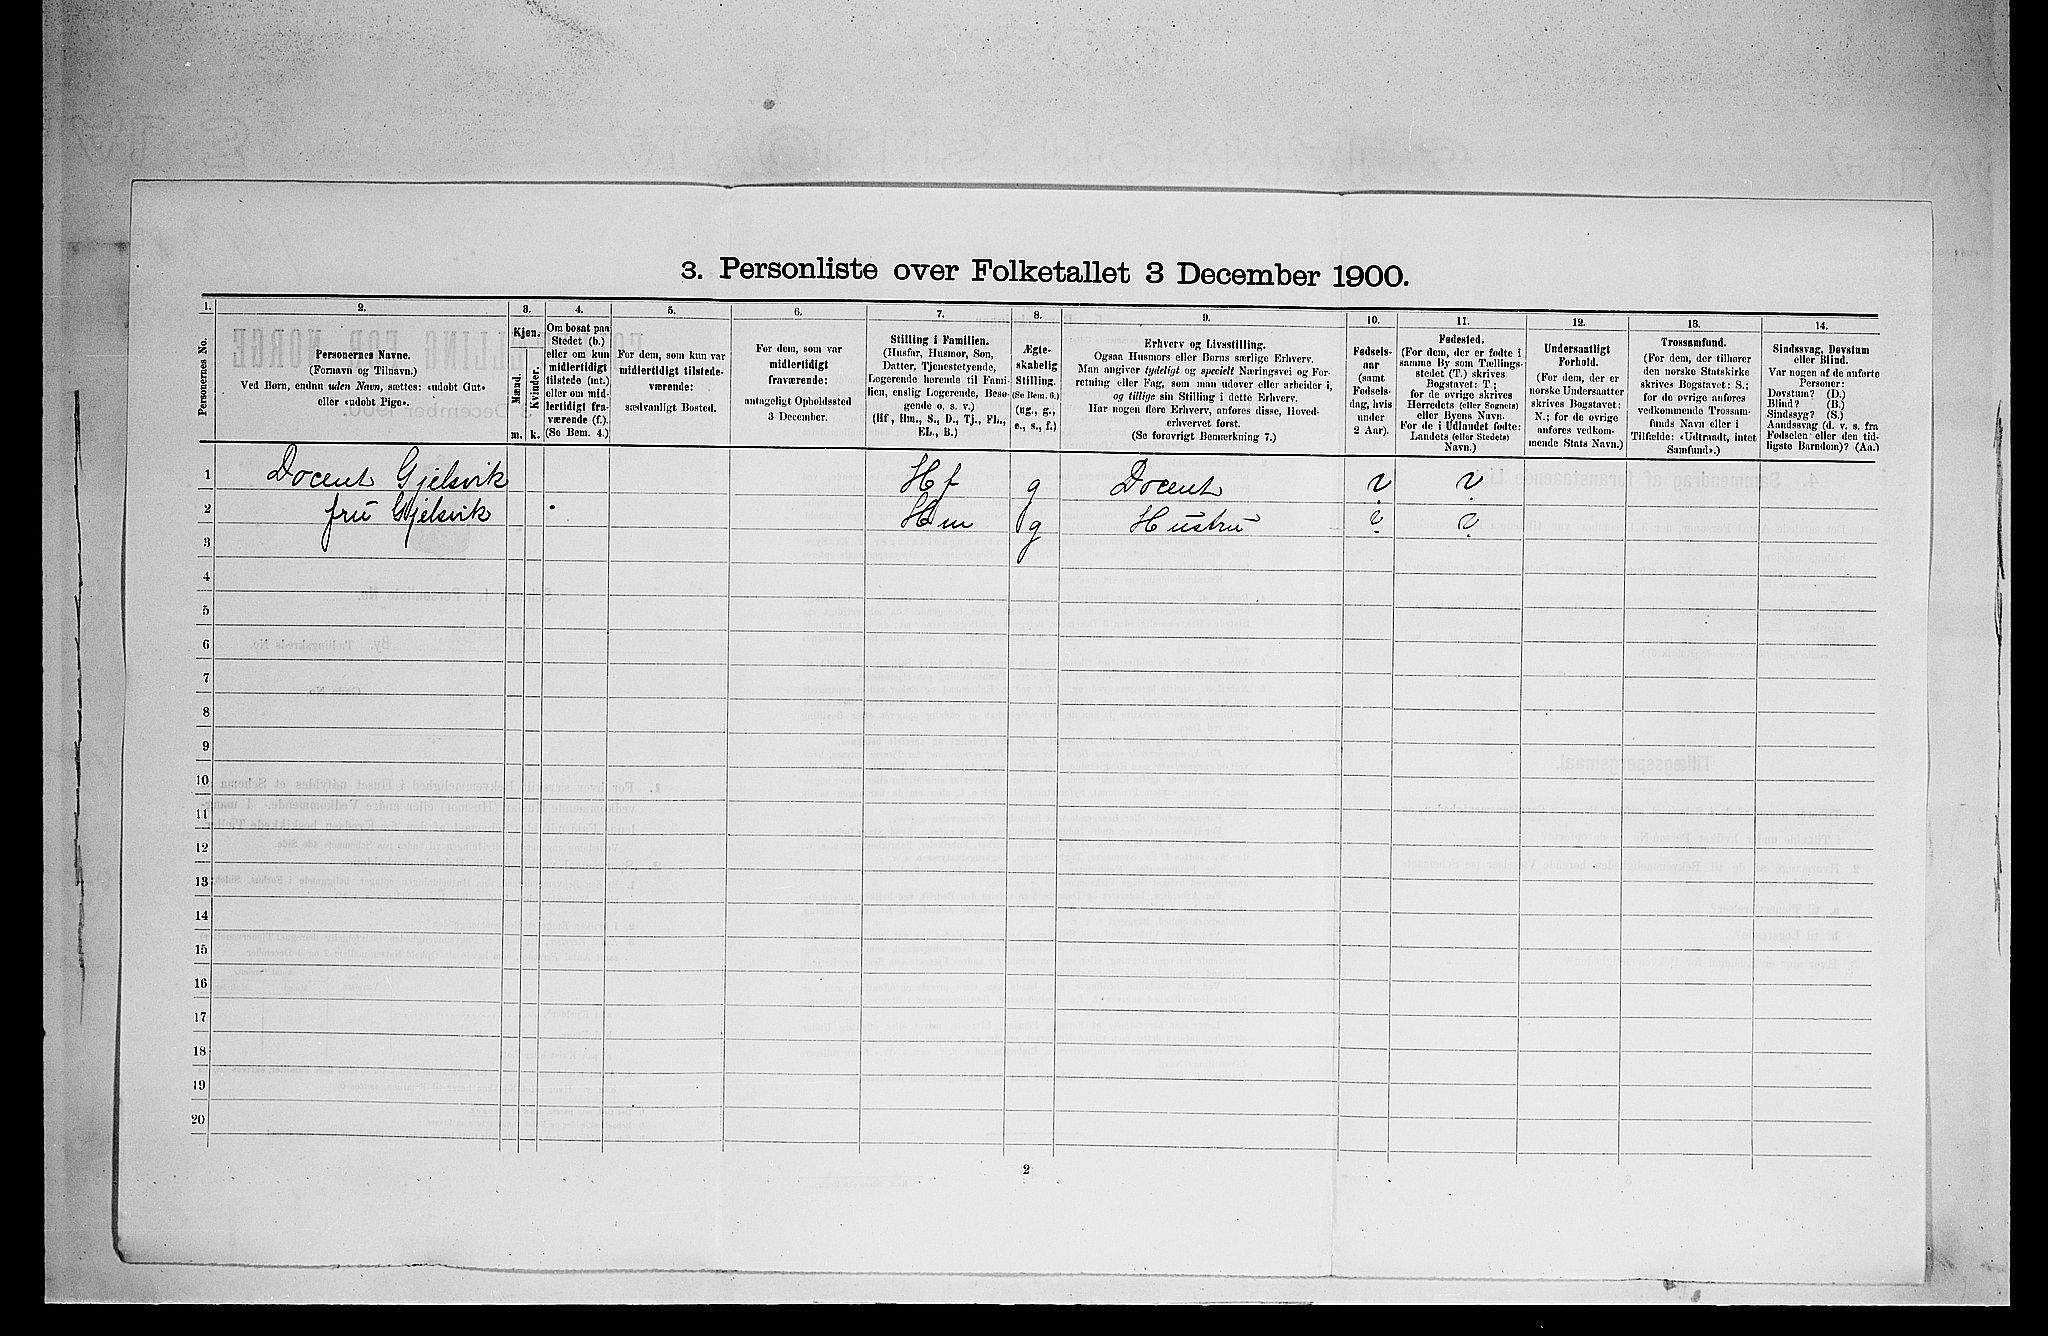 3. Personliste over Folketallet 3 December 1900.
1.
2.
3.
4.
5.
6.
7.
8.
9.
10.
11.
12.
13.
14.
Personernes No.
Personernes Navne.
(Fornavn og Tilnavn.)
Ved Børn, endnu uden Navn, sættes: «udøbt Gut»
eller «udøbt Pige».
Kjøn.
Mænd.
Kvinder.
m.
k.
Om bosat paa
Stedet (b.)
eller om kun
midlertidigt
tilstede (mt.)
eller om mid-
lertidigt fra-
værende (f.).
(Se Bem. 4.)
For dem, som kun var
midlertidigt tilstede-
værende:
sædvanligt Bosted.
For dem, som var
midlertidigt
fraværende:
antageligt Opholdssted
3 December.
Stilling i Familien.
(Husfar, Husmor, Søn,
Datter, Tjenestetyende,
Logerende hørende til Fami-
lien, enslig Logerende, Besø-
gende o. s. v.)
(Hf, Hm., S., D., Tj., FL.,
EL., B.)
Ægte-
skabelig
Stilling.
(Se Bem. 6.)
(ug., g.,
e., s., f.)
Erhverv og Livsstilling.
Ogsaa Husmors eller Børns særlige Erhverv.
Man angiver tydeligt og specielt Næringsvei og For-
retning eller Fag, som man udøver eller arbeider i,
og tillige sin Stilling i dette Erhverv.
Har nogen flere Erhverv, anføres disse, Hoved-
erhvervet først.
(Se forøvrigt Bemærkning 7.)
Fødsels-
aar
(samt
Fødsels-
dag, hvis
under
2 Aar).
Fødested.
(For dem, der er fødte i
samme By som Tællings-
stedet (T.) skrives
Bogstavet: T.;
for de øvrige skrives
Herredets (eller Sognets)
eller Byens Navn.
For de i Udlandet fødte:
Landets (eller Stedets)
Navn.)
Undersaatligt
Forhold.
(For dem, der er
norske Undersaatter
skrives Bogstavet:
N.; for de øvrige
anføres vedkom-
mende Stats Navn.)
Trossamfund.
(For dem, der tilhører
den norske Statskirke
skrives Bogstavet: S.;
for de øvrige anføres
vedkommende Trossam-
funds Navn eller i
Tilfælde: «Udtraadt, intet
Samfund».)
Sindssvag, Døvstum
eller Blind.
Var nogen af de anførte
Personer:
Døvstum? (D.)
Blind? (B.)
Sindssyg? (S.)
Aandssvag (d. v. s. fra
Fødselen eller den tid-
ligste Barndom)? (Aa.)
1 Docent Gjelsvik Hf g Docent ? ?
2 fru Gjelsvik Hm g Hustru ? ?
3
4
5
6
7
8
9
10
11
12
13
14
15
16
17
18
19
20
2